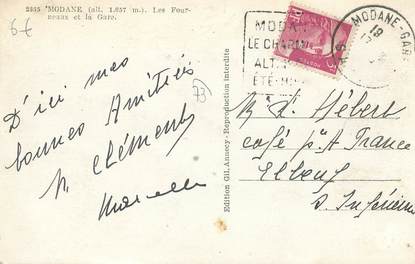 2355 'MODANE (alt. 1.057 m.). Les Four-
neaux et la Gare.
6€
73
D'ici mes
bonnes Amitiés
M. Clément
Marcelle
Edition GIL, Annecy - Reproduction interdite
MODANE
LE CHARM
ALT
ÉTÉ-
MODANE-GARE
19
Hébert
café pce A. France
Elbeuf
S. Inférieure